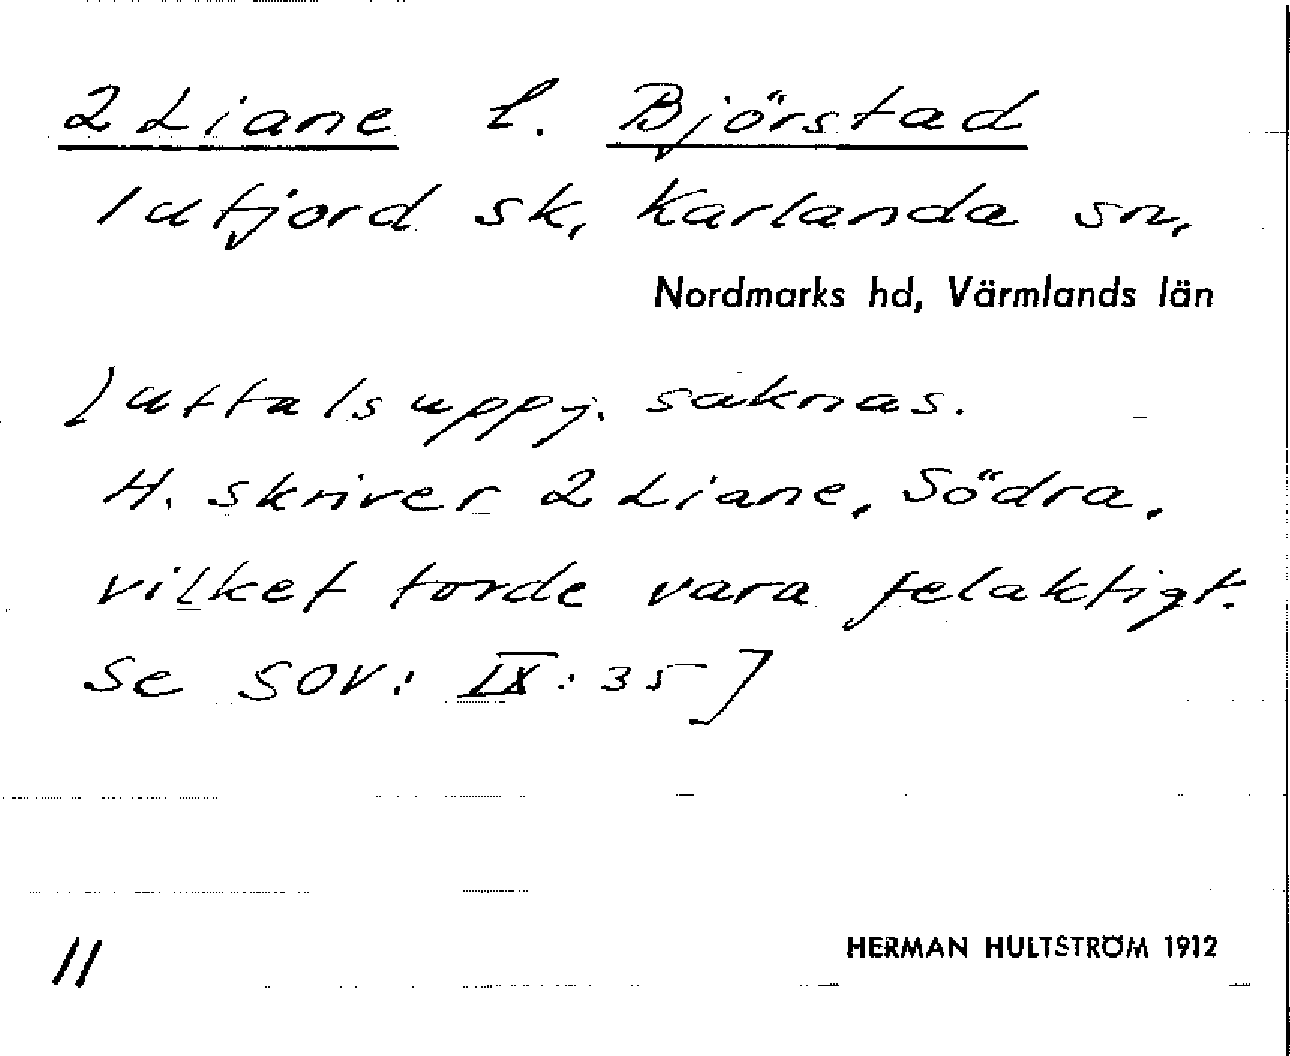 2 Liane l. Björstad
1 utjord sk, Karlanda sn,
Nordmarks hd, Värmlands län
[uttalsuppg. saknas.
H. skriver 2 Liane, Södra,
vilket torde vara felaktigt.
Se SOV: IX: 35]
11
HERMAN HULTSTRÖM 1912